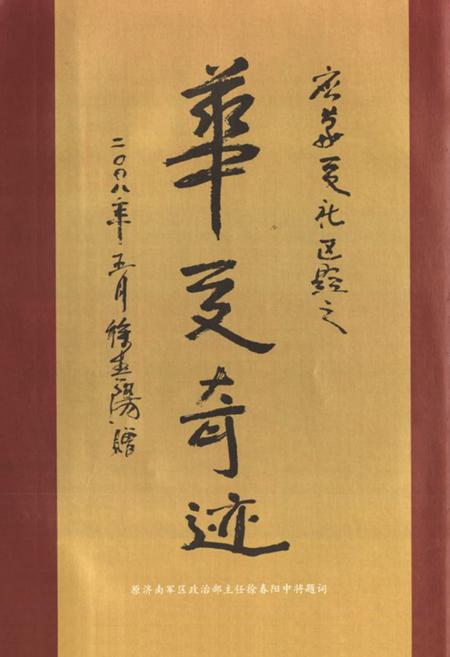 应华夏社区题之
華夏奇迹
二〇〇八年五月徐春陽贈
原济南军区政治部主任徐春阳中将题词